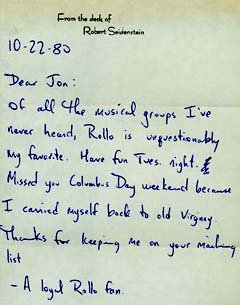 From the desk of
Robert Seidenstein
10-22-80
Dear Jon:
Of all the musical groups I've
never heard, Rollo is unquestionably
my favorite. Have fun Tues. night.
Missed you Columbus Day weekend because
I carried myself back to old Virginny.
Thanks for keeping me on your mailing
list
- A loyal Rollo fan.